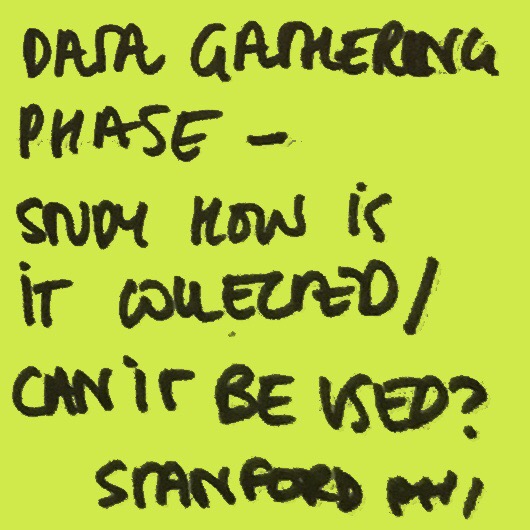 DATA GATHERING
PHASE -
STUDY HOW IS
IT COLLECTED/
CAN IT BE USED?
STANFORD